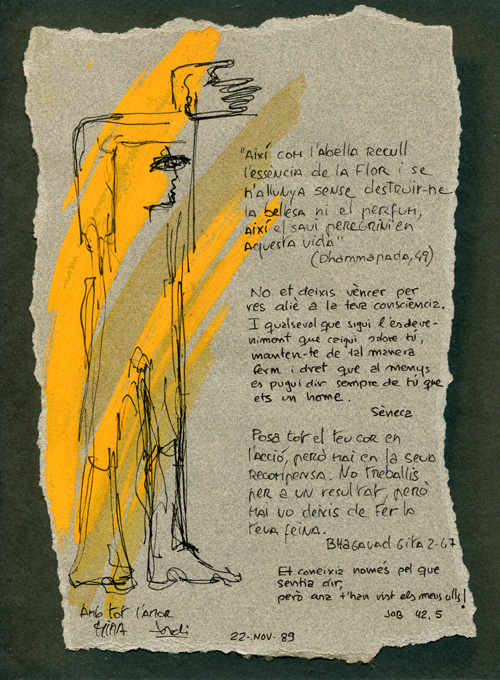 "Així com l'abella recull
l'essència de la flor i se
n'allunya sense destruir-ne
la bellesa ni el perfum,
així el savi peregrini en
aquesta vida"
(Dhammapada, 49)
No et deixis vèncer per
res aliè a la teva consciència.
I qualsevol que sigui l'esdeve-
niment que caigui sobre tú,
manten-te de tal manera
ferm i dret que al menys
es pugui dir sempre de tú que
ets un home.
Sèneca
Posa tot el teu cor en
l'acció, però mai en la seva
recompensa. No treballis
per a un resultat, però
mai no deixis de fer la
teva feina.
Bhagavad Gita 2-47
Et coneixia només pel que
sentia dir,
però ara t'han vist els meus ulls!
JOB 42,5
Amb tot l'amor
Jordi
22-NOV-89